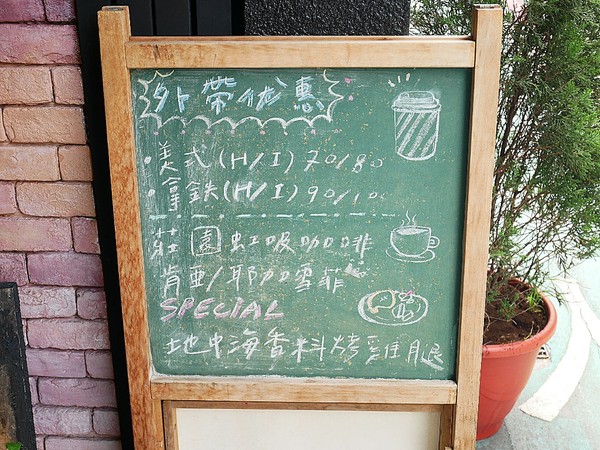 外帶优惠
・美式(H/I) 70/80
・拿鉄(H/I) 90/100
莊園虹吸咖啡
肯亞/耶加雪菲
SPECIAL
地中海香料烤雞腿